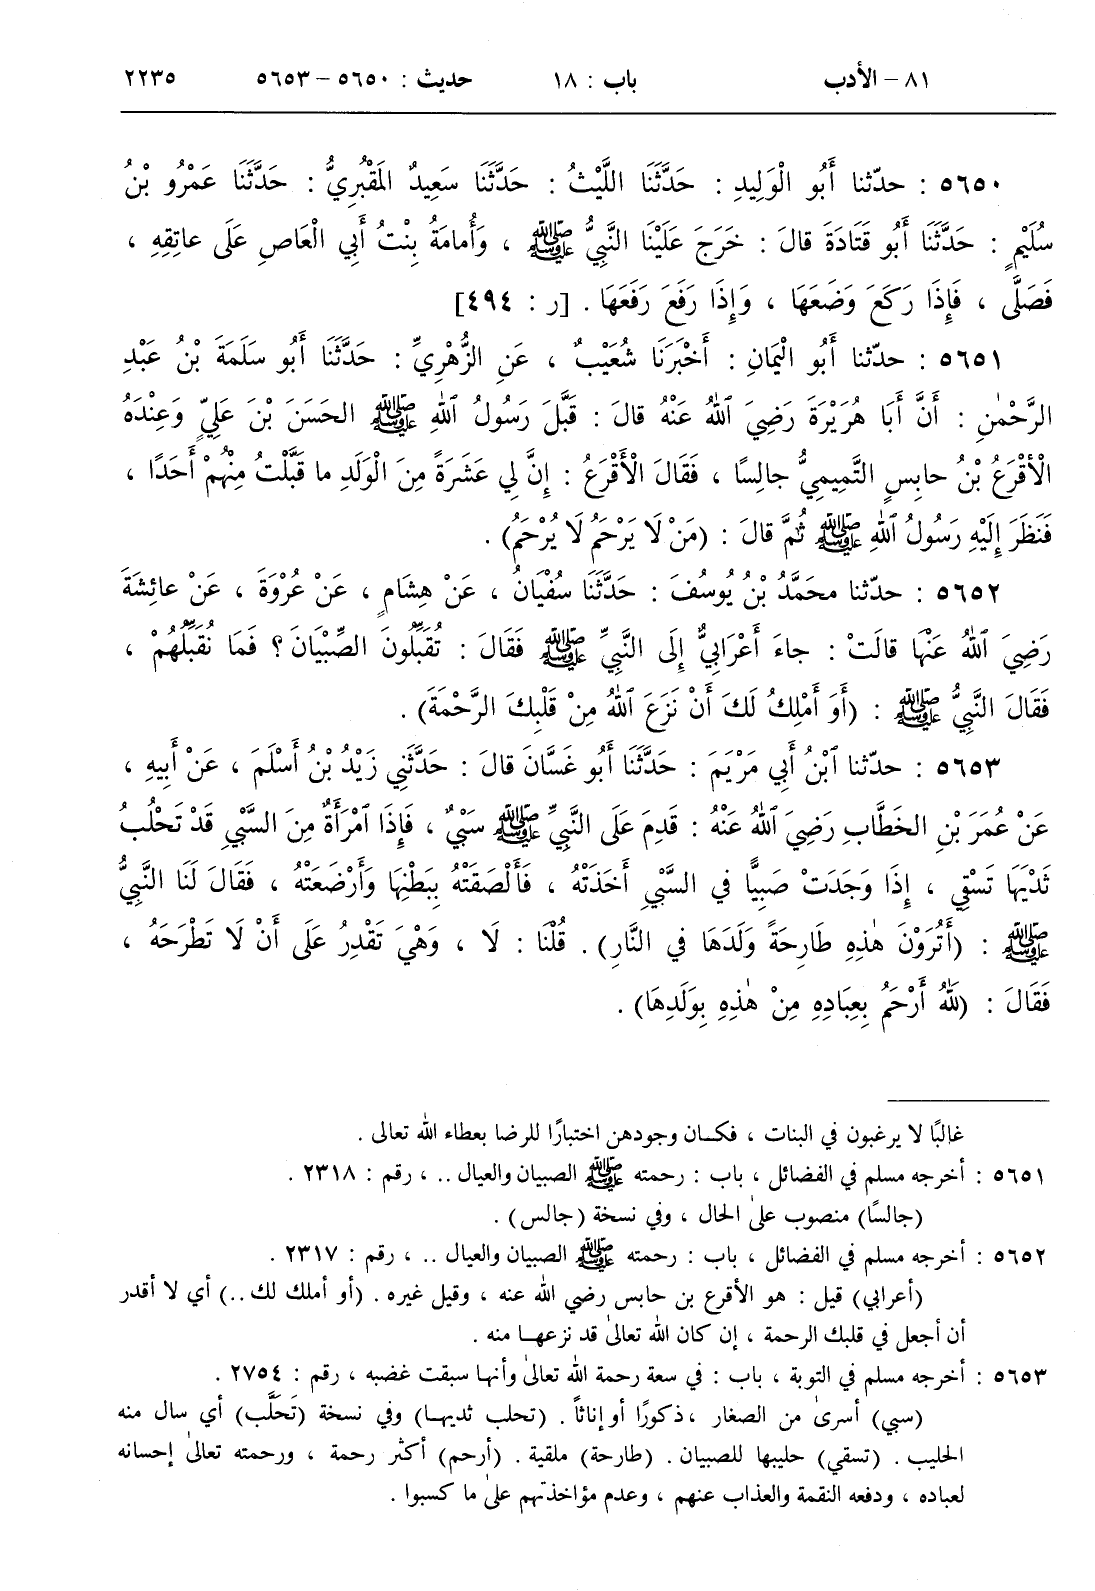 ٨١ – الأدب باب : ١٨ حديث : ٥٦٥٠ – ٥٦٥٣ ٢٢٣٥
٥٦٥٠ : حدّثنا أَبُو الْوَلِيدِ : حَدَّثَنَا اللَّيْثُ : حَدَّثَنَا سَعِيدٌ المَقْبُرِيُّ : حَدَّثَنَا عَمْرُو بْنُ
سُلَيْمٍ : حَدَّثَنَا أَبُو قَتَادَةَ قالَ : خَرَجَ عَلَيْنَا النَّبِيُّ ﷺ ، وَأُمامَةُ بِنْتُ أَبِي الْعَاصِ عَلَى عاتِقِهِ ،
فَصَلَّى ، فَإِذَا رَكَعَ وَضَعَهَا ، وَإِذَا رَفَعَ رَفَعَهَا . [ر : ٤٩٤]
٥٦٥١ : حدّثنا أَبُو الْيَمانِ : أَخْبَرَنَا شُعَيْبٌ ، عَنِ الزُّهْرِيِّ : حَدَّثَنَا أَبُو سَلَمَةَ بْنُ عَبْدِ
الرَّحْمٰنِ : أَنَّ أَبَا هُرَيْرَةَ رَضِيَ ٱللهُ عَنْهُ قالَ : قَبَّلَ رَسُولُ ٱللهِ ﷺ الحَسَنَ بْنَ عَلِيٍّ وَعِنْدَهُ
الْأَقْرَعُ بْنُ حابِسٍ التَّمِيمِيُّ جالِسًا ، فَقَالَ الْأَقْرَعُ : إِنَّ لِي عَشَرَةً مِنَ الْوَلَدِ ما قَبَّلْتُ مِنْهُمْ أَحَدًا ،
فَنَظَرَ إِلَيْهِ رَسُولُ ٱللهِ ﷺ ثُمَّ قالَ : (مَنْ لَا يَرْحَمُ لَا يُرْحَمُ) .
٥٦٥٢ : حدّثنا محَمَّدُ بْنُ يُوسُفَ : حَدَّثَنَا سُفْيَانُ ، عَنْ هِشَامٍ ، عَنْ عُرْوَةَ ، عَنْ عائِشَةَ
رَضِيَ ٱللهُ عَنْهَا قالَتْ : جاءَ أَعْرَابِيٌّ إِلَى النَّبِيِّ ﷺ فَقَالَ : تُقَبِّلُونَ الصِّبْيَانَ ؟ فَمَا نُقَبِّلُهُمْ ،
فَقَالَ النَّبِيُّ ﷺ : (أَوَ أَمْلِكُ لَكَ أَنْ نَزَعَ ٱللهُ مِنْ قَلْبِكَ الرَّحْمَةَ) .
٥٦٥٣ : حدّثنا ٱبْنُ أَبِي مَرْيَمَ : حَدَّثَنَا أَبُو غَسَّانَ قالَ : حَدَّثَنِي زَيْدُ بْنُ أَسْلَمَ ، عَنْ أَبِيهِ ،
عَنْ عُمَرَ بْنِ الخَطَّابِ رَضِيَ ٱللهُ عَنْهُ : قَدِمَ عَلَى النَّبِيِّ ﷺ سَبْيٌ ، فَإِذَا ٱمْرَأَةٌ مِنَ السَّبْيِ قَدْ تَحْلُبُ
ثَدْيَهَا تَسْقِي ، إِذَا وَجَدَتْ صَبِيًّا في السَّبْيِ أَخَذَتْهُ ، فَأَلْصَقَتْهُ بِبَطْنِهَا وَأَرْضَعَتْهُ ، فَقَالَ لَنَا النَّبِيُّ
ﷺ : (أَتُرَوْنَ هٰذِهِ طَارِحَةً وَلَدَهَا فِي النَّارِ) . قُلْنَا : لَا ، وَهْيَ تَقْدِرُ عَلَى أَنْ لَا تَطْرَحَهُ ،
فَقَالَ : (لَلّٰهُ أَرْحَمُ بِعِبَادِهِ مِنْ هٰذِهِ بِوَلَدِهَا) .
غالبًا لا يرغبون في البنات ، فكان وجودهن اختبارًا للرضا بعطاء الله تعالى .
٥٦٥١ : أخرجه مسلم في الفضائل ، باب : رحمته ﷺ الصبيان والعيال .. ، رقم : ٢٣١٨ .
(جالسًا) منصوب على الحال ، وفي نسخة (جالس) .
٥٦٥٢ : أخرجه مسلم في الفضائل ، باب : رحمته ﷺ الصبيان والعيال .. ، رقم : ٢٣١٧ .
(أعرابي) قيل : هو الأقرع بن حابس رضي الله عنه ، وقيل غيره . (أو أملك لك ..) أي لا أقدر
أن أجعل في قلبك الرحمة ، إن كان الله تعالىٰ قد نزعها منه .
٥٦٥٣ : أخرجه مسلم في التوبة ، باب : في سعة رحمة الله تعالىٰ وأنها سبقت غضبه ، رقم : ٢٧٥٤ .
(سبي) أسرىٰ من الصغار ، ذكورًا أو إناثًا . (تحلب ثديها) وفي نسخة (تَحَلَّب) أي سال منه
الحليب . (تسقي) حليبها للصبيان . (طارحة) ملقية . (أرحم) أكثر رحمة ، ورحمته تعالىٰ إحسانه
لعباده ، ودفعه النقمة والعذاب عنهم ، وعدم مؤاخذتهم علىٰ ما كسبوا .